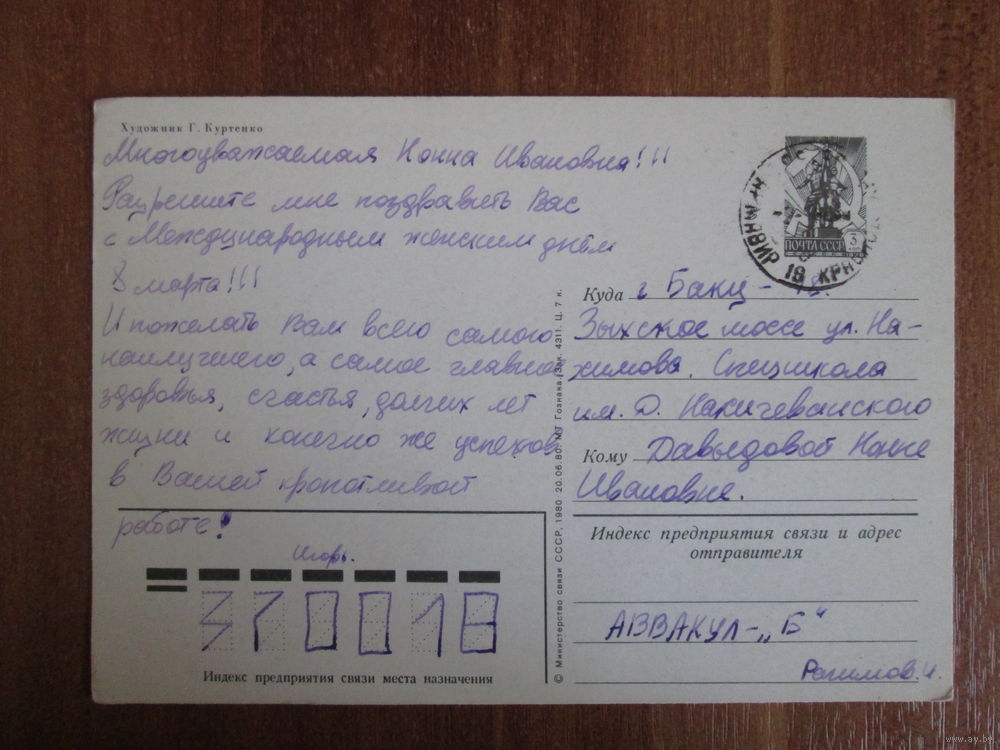 Художник Г. Куртенко
Многоуважаемая Нонна Ивановна!!!
Разрешите мне поздравить Вас
с Международным женским днём
8 марта!!!
И пожелать Вам всего самого
наилучшего, а самое главное
здоровья, счастья, долгих лет
жизни и конечно же успехов
в Вашей кропотливой
работе!
Игорь.
370018
Индекс предприятия связи места назначения
© Министерство связи СССР, 1980 20.06.80. МТ Гознака. Зак. 4311. Ц. 7 к.
ПОЧТА СССР
Куда г Баку - 18.
Зыхское шоссе ул. На-
химова. Спецшкола
им. Д. Нахичеванского
Кому Давыдовой Нонне
Ивановне.
Индекс предприятия связи и адрес
отправителя
АВВАКУЛ-„Б“
Рагимов.И.
www.ay.by